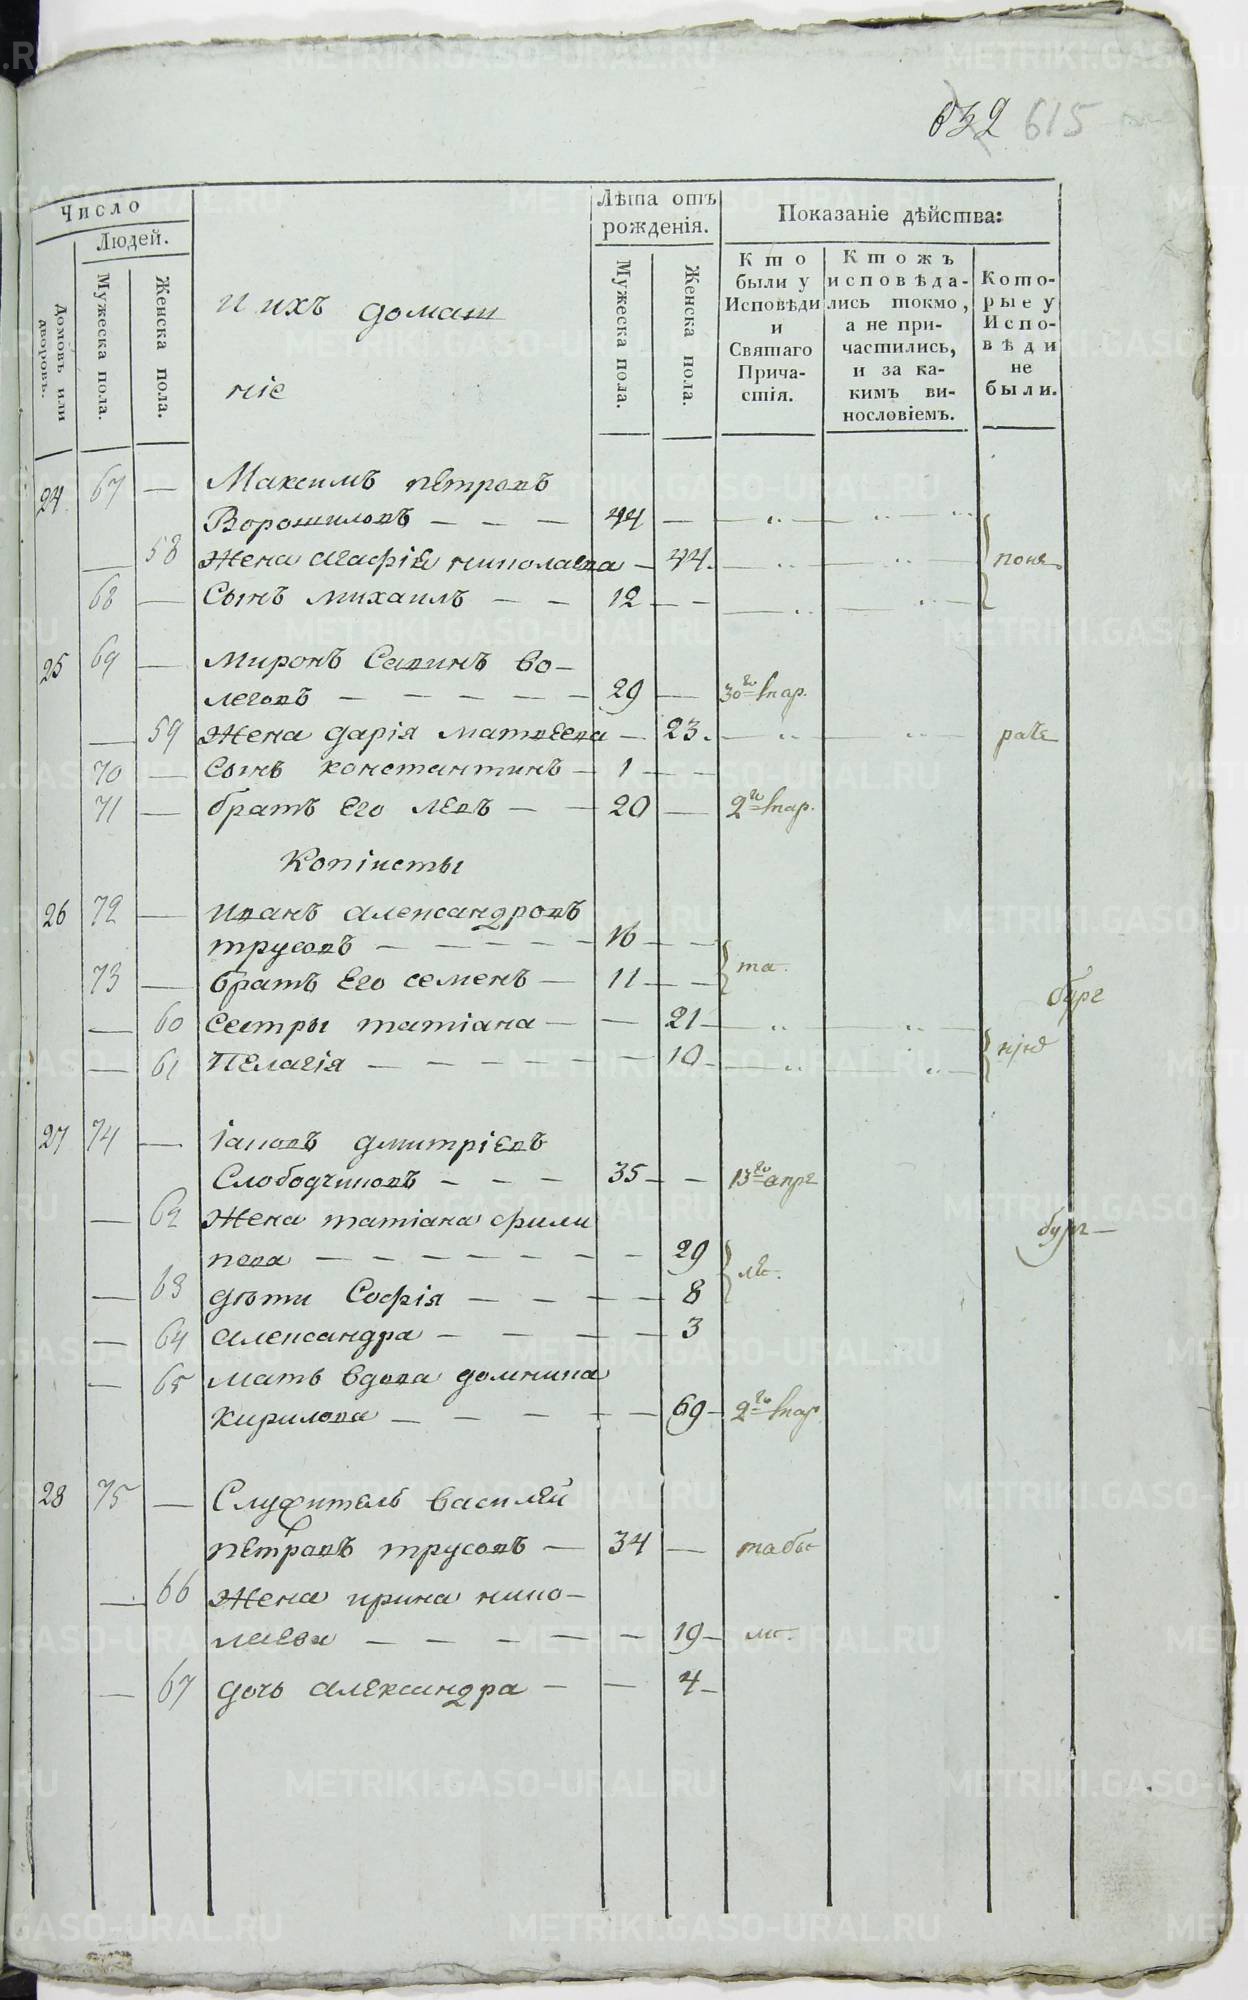 632 615
Число
Людей.
Домовъ или дворовъ.
Мужеска пола.
Женска пола.
и ихъ домаш
ніе
Лѣта отъ рожденія.
Мужеска пола.
Женска пола.
Показаніе дѣйства:
Кто были у Исповѣди и Святаго Причастія.
Ктожъ исповѣдались токмо, а не причастились, и за какимъ винословіемъ.
Которые у Исповѣди не были.
24 67 — Максимъ петровъ
Ворошиловъ — — — 44 —
— 58 Жена агафіа николаева — 44.
68 — Сынъ михаилъ — — 12 — —
25 69 — миронъ Савинъ во-
леговъ — — — — — 29 — 30го мар.
— 59 Жена дарія матвеева — 23.
70 — сынъ константинъ — 1 — —
71 — братъ его левъ — — 20 — 2го мар.
Копіисты
26 72 — иванъ александровъ
трусовъ — — — — — 16 — —
73 — братъ его семенъ — 11 — —
— 60 сестры татіана — — 21
— 61 Пелагія — — — — — 10
27 74 — Іаковъ дмитріевъ
Слободчиковъ — — — 35 — — 13го апре
— 62 Жена татіана фили
пова — — — — — — 29
— 63 дѣти Софія — — — — 8
— 64 александра — — — — 3
— 65 мать вдова домника
Кирилова — — — — — 69 — 2го мар
28 75 — Служитель василей
петровъ трусовъ — 34 —
— 66 Жена ирина нико-
лаева — — — — — 19
— 67 дочь александра — — 4
METRIKI.GASO-URAL.RU